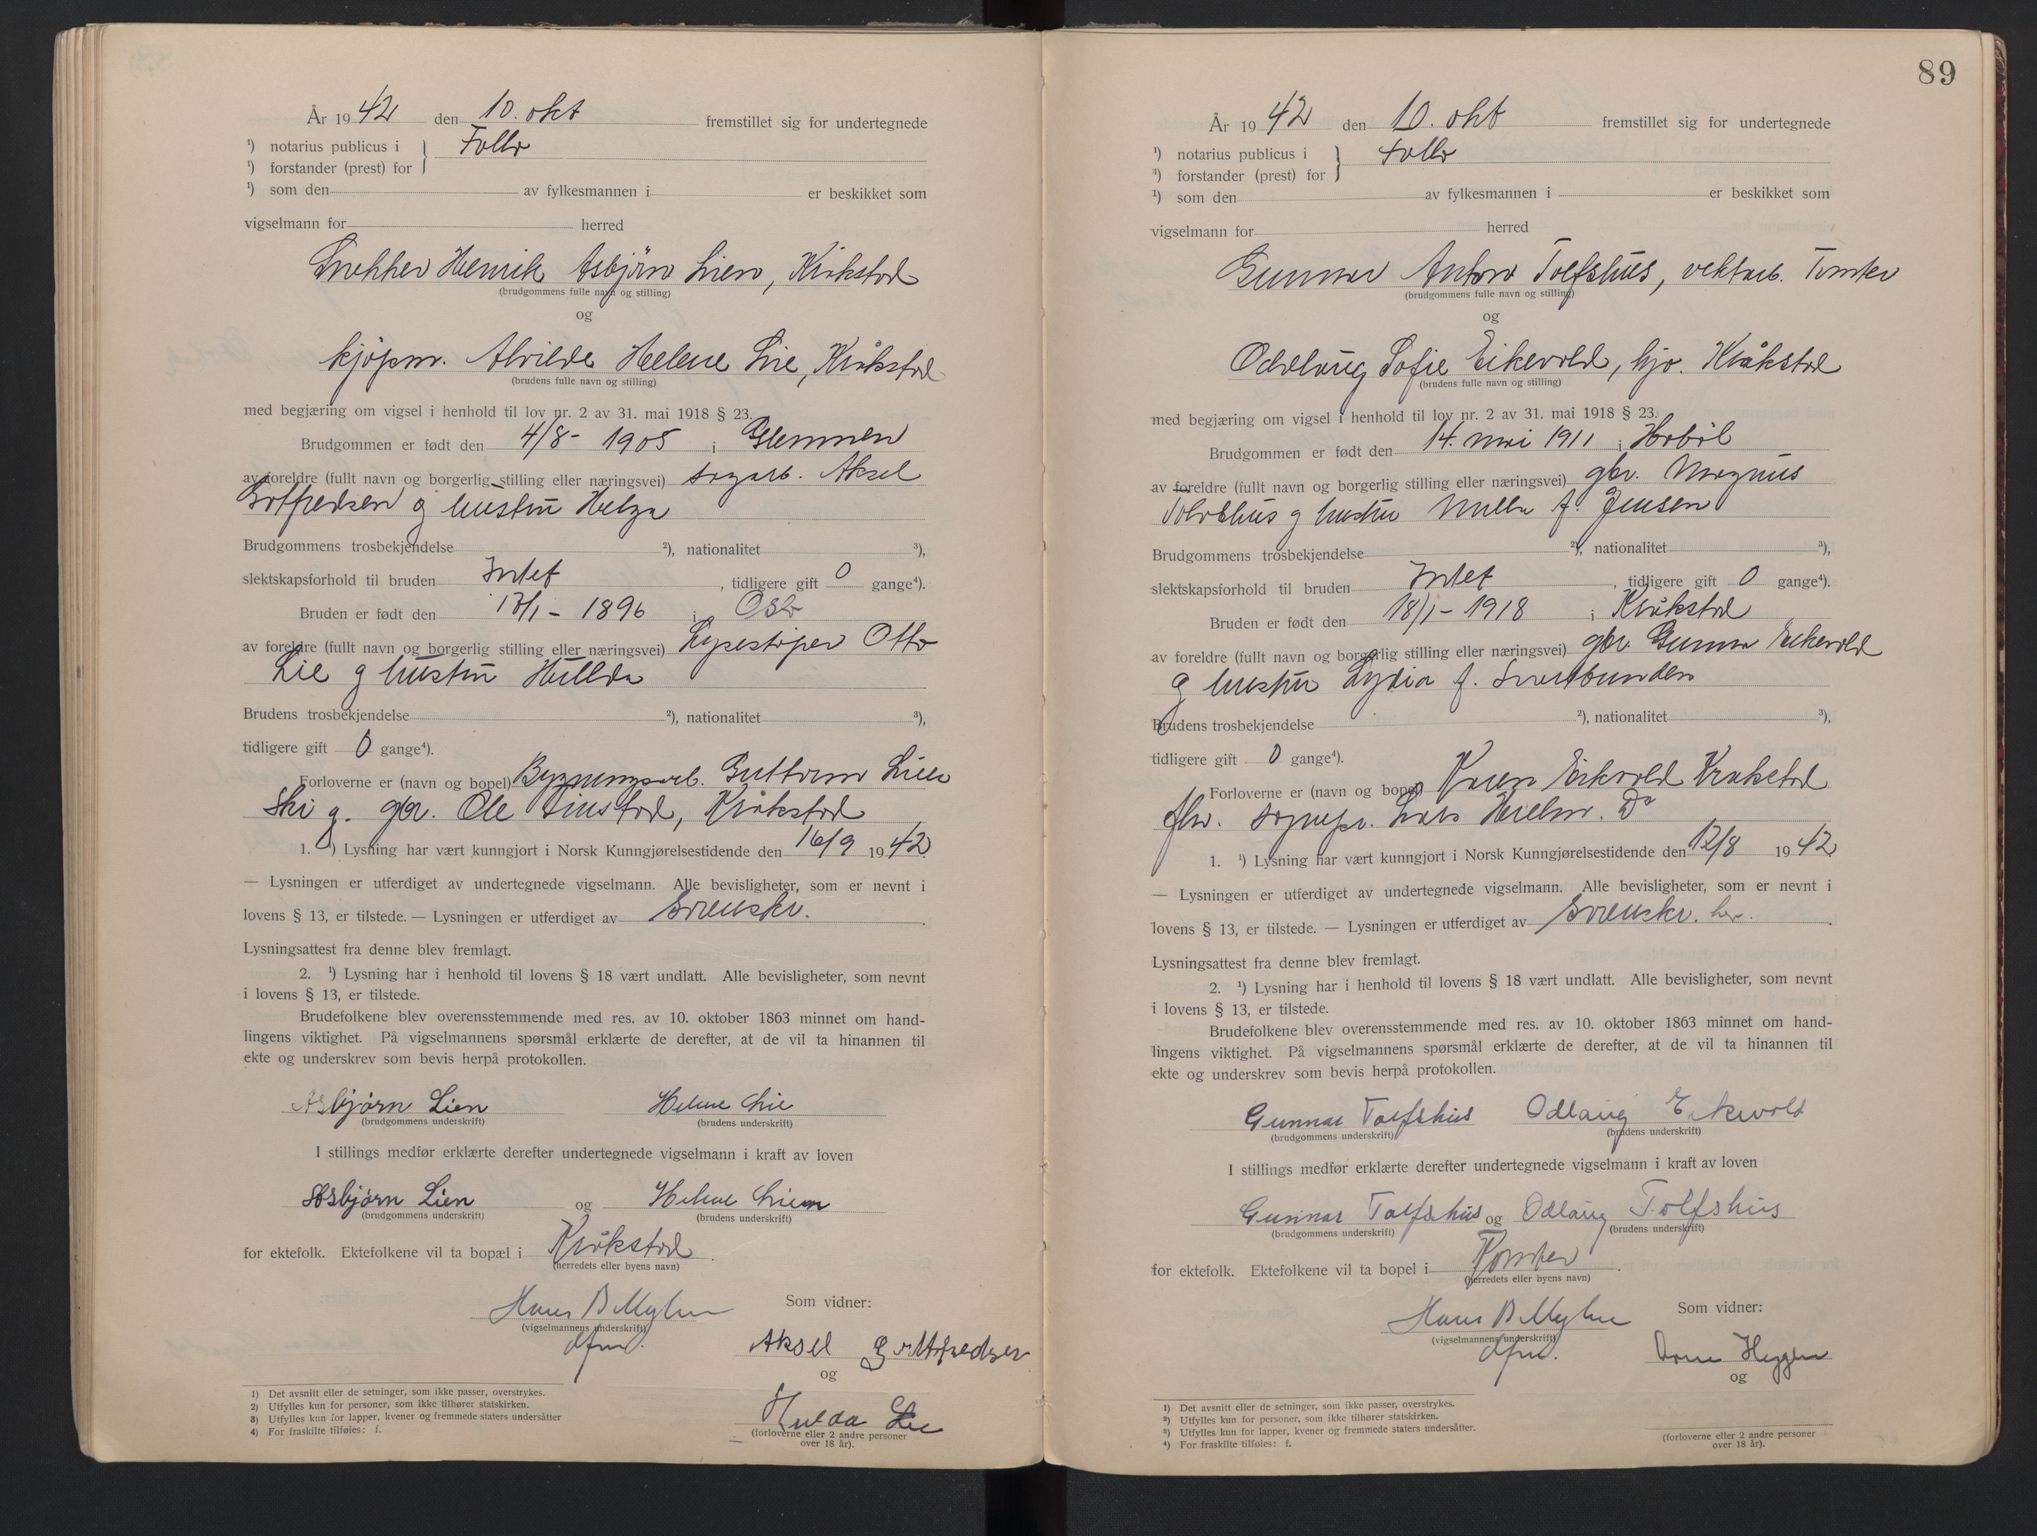 År 1942 den 10. okt fremstillet sig for undertegnede
¹) notarius publicus i Follo
¹) forstander (prest) for
¹) som den av fylkesmannen i er beskikket som
vigselmann for herred
Snekker Henrik Asbjörn Lien, Kråkstad
(brudgommens fulle navn og stilling)
og
kjöpm. Alvilde Helene Lie, Kråkstad
(brudens fulle navn og stilling)
med begjæring om vigsel i henhold til lov nr. 2 av 31. mai 1918 § 23.
Brudgommen er født den 4/8 - 1905 i Glemmen
av foreldre (fullt navn og borgerlig stilling eller næringsvei) sagarb. Aksel
Gotfredsen og hustru Helga
Brudgommens trosbekjendelse ²), nationalitet ³),
slektskapsforhold til bruden Intet, tidligere gift 0 gange⁴).
Bruden er født den 1896 i Oslo
av foreldre (fullt navn og borgerlig stilling eller næringsvei) Lysestöper Otto
Lie og hustru Hullda
Brudens trosbekjendelse ²), nationalitet ³),
tidligere gift 0 gange⁴).
Forloverne er (navn og bopel) Bygningsarb. Guttorm Lien
Ski og gbr. Ole Kråkstad
1. ¹) Lysning har vært kunngjort i Norsk Kunngjørelsestidende den 16/9 1942
— Lysningen er utferdiget av undertegnede vigselmann. Alle bevisligheter, som er nevnt i
lovens § 13, er tilstede. — Lysningen er utferdiget av Sorenskr.
Lysningsattest fra denne blev fremlagt.
2. ¹) Lysning har i henhold til lovens § 18 vært undlatt. Alle bevisligheter, som nevnt
i lovens § 13, er tilstede.
Brudefolkene blev overensstemmende med res. av 10. oktober 1863 minnet om hand-
lingens viktighet. På vigselmannens spørsmål erklærte de derefter, at de vil ta hinannen til
ekte og underskrev som bevis herpå protokollen.
Asbjørn Lien Helene Lie
(brudgommens underskrift) (brudens underskrift)
I stillings medfør erklærte derefter undertegnede vigselmann i kraft av loven
Asbjørn Lien og Helene Lien
(brudgommens underskrift) (brudens underskrift)
for ektefolk. Ektefolkene vil ta bopæl i Kråkstad.
(herredets eller byens navn)
Hans B Myhre Som vidner:
(vigselmannens underskrift)
Aksel Gottfredsen
og
Hulda Lie
(forloverne eller 2 andre personer
over 18 år).
1) Det avsnitt eller de setninger, som ikke passer, overstrykes.
2) Utfylles kun for personer, som ikke tilhører statskirken.
3) Utfylles kun for lapper, kvener og fremmede staters undersåtter
4) For fraskilte tilføies: f.
89
År 1942 den 10. okt fremstillet sig for undertegnede
¹) notarius publicus i Follo
¹) forstander (prest) for
¹) som den av fylkesmannen i er beskikket som
vigselmann for herred
Gunnar Anton Tolfshus, vektarb. Tomter
(brudgommens fulle navn og stilling)
og
Oddlaug Sofie Eikevold, hjv. Kråkstad
(brudens fulle navn og stilling)
med begjæring om vigsel i henhold til lov nr. 2 av 31. mai 1918 § 23.
Brudgommen er født den 14. mai 1911 i Hobøl
av foreldre (fullt navn og borgerlig stilling eller næringsvei) gbr. Magnus
Tolvshus og hustru f. Jensen
Brudgommens trosbekjendelse ²), nationalitet ³),
slektskapsforhold til bruden Intet, tidligere gift 0 gange⁴).
Bruden er født den 18/1 - 1918 i Kråkstad
av foreldre (fullt navn og borgerlig stilling eller næringsvei) gbr. Gunnar Eikevold
og hustru Lydia f. Svartbunden
Brudens trosbekjendelse ²), nationalitet ³),
tidligere gift 0 gange⁴).
Forloverne er (navn og bopel) Karen Eikvold Kråkstad
sognepr. Lars Do
1. ¹) Lysning har vært kunngjort i Norsk Kunngjørelsestidende den 12/8 1942
— Lysningen er utferdiget av undertegnede vigselmann. Alle bevisligheter, som er nevnt i
lovens § 13, er tilstede. — Lysningen er utferdiget av Sorenskr. her.
Lysningsattest fra denne blev fremlagt.
2. ¹) Lysning har i henhold til lovens § 18 vært undlatt. Alle bevisligheter, som nevnt
i lovens § 13, er tilstede.
Brudefolkene blev overensstemmende med res. av 10. oktober 1863 minnet om hand-
lingens viktighet. På vigselmannens spørsmål erklærte de derefter, at de vil ta hinannen til
ekte og underskrev som bevis herpå protokollen.
Gunnar Tolfshus Odlaug Eikevold
(brudgommens underskrift) (brudens underskrift)
I stillings medfør erklærte derefter undertegnede vigselmann i kraft av loven
Gunnar Tolfshus og Odlaug Tolfshus
(brudgommens underskrift) (brudens underskrift)
for ektefolk. Ektefolkene vil ta bopel i Tomter.
(herredets eller byens navn)
Hans B Myhre Som vidner:
(vigselmannens underskrift)
Heggen
og
(forloverne eller 2 andre personer
over 18 år).
¹) Det avsnitt eller de setninger, som ikke passer, overstrykes.
²) Utfylles kun for personer, som ikke tilhører statskirken.
³) Utfylles kun for lapper, kvener og fremmede staters undersåtter.
⁴) For fraskilte tilføies: f.